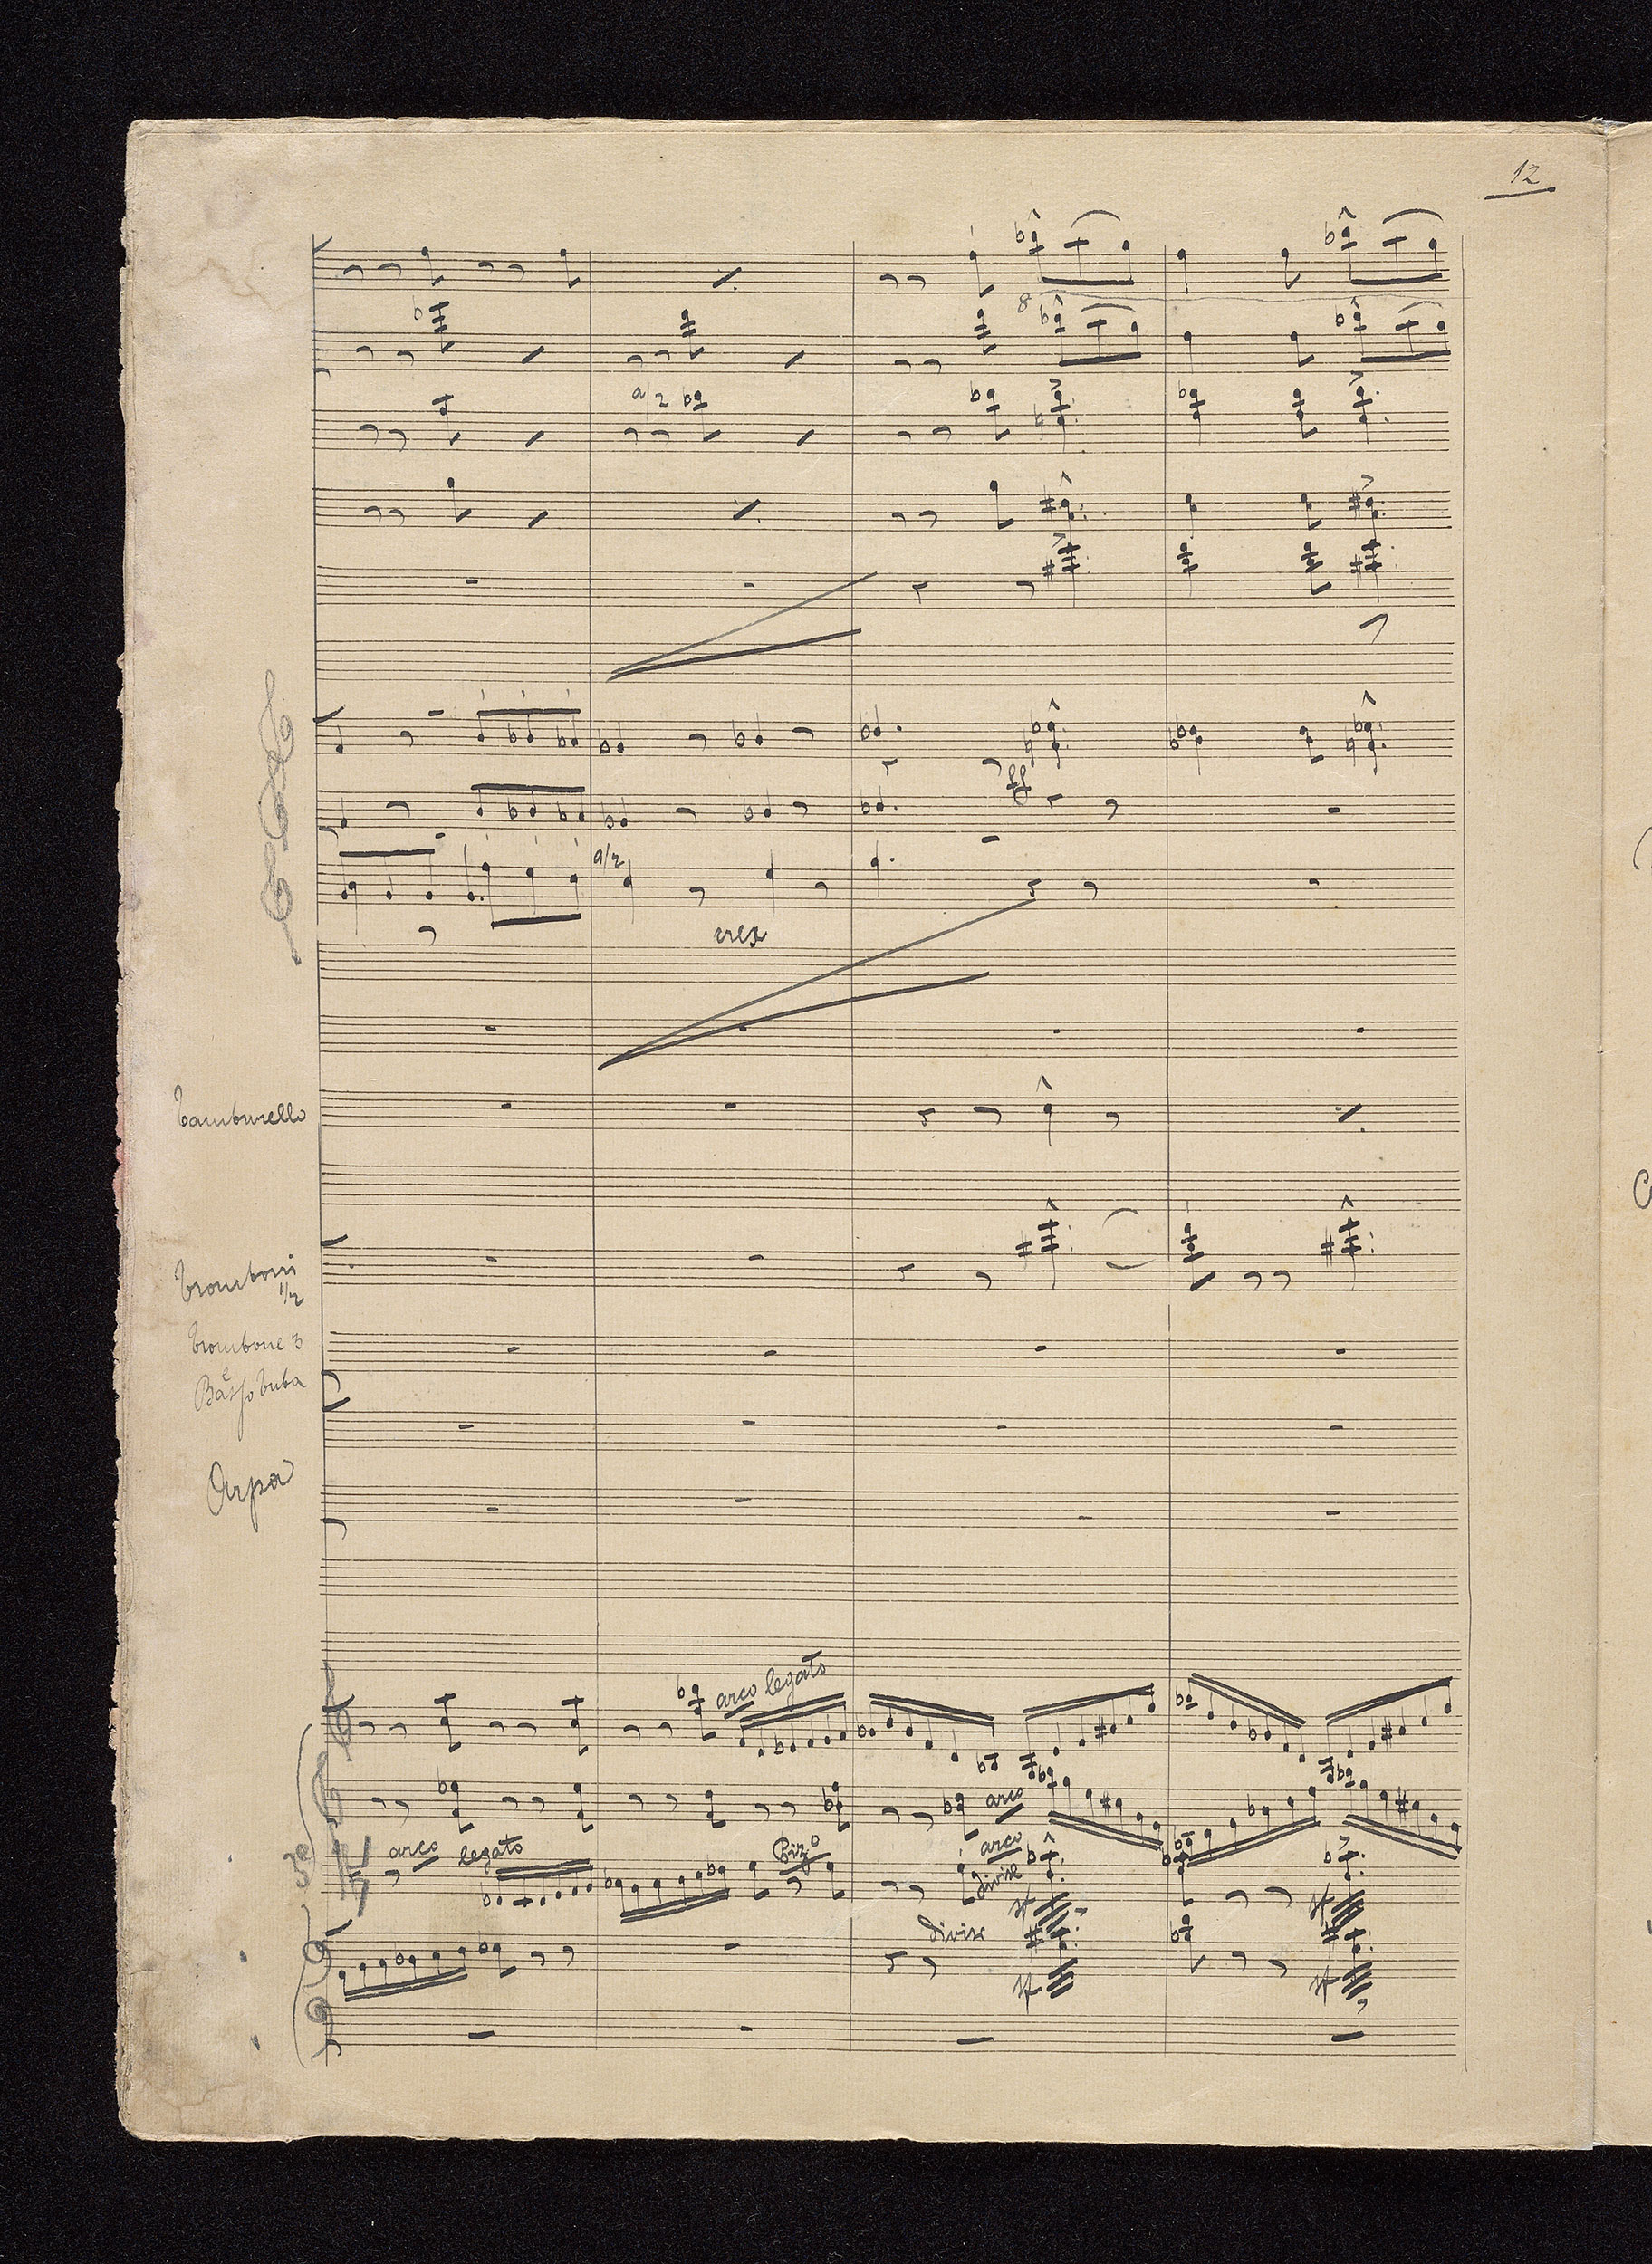 12
8
a/2
ff
a/2
cres
Tamburello
Tromboni
1/2
Trombone 3
e
Basso tuba
Arpa
arco legato
arco
arco legato
Pizo
arco
divise
sf
sf
divise
sf
sf